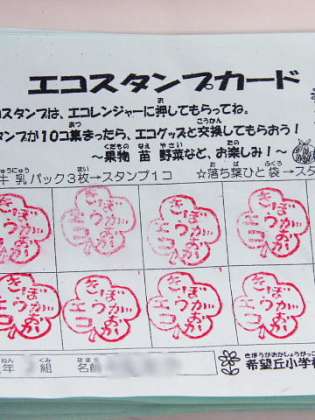 エコスタンプカード
コスタンプは、エコレンジャーに押してもらってね。
タンプが10コ集まったら、エコグッズと交換してもらおう!
~果物 苗 野菜など、お楽しみ!~
牛乳パック3枚→スタンプ1コ ☆落ち葉ひと袋→スタ
きぼうがおか エコ
きぼうがおか エコ
きぼうがおか エコ
きぼうがおか エコ
きぼうがおか エコ
きぼうがおか エコ
きぼうがおか エコ
きぼうがおか エコ
年 組 名前
希望丘小学校